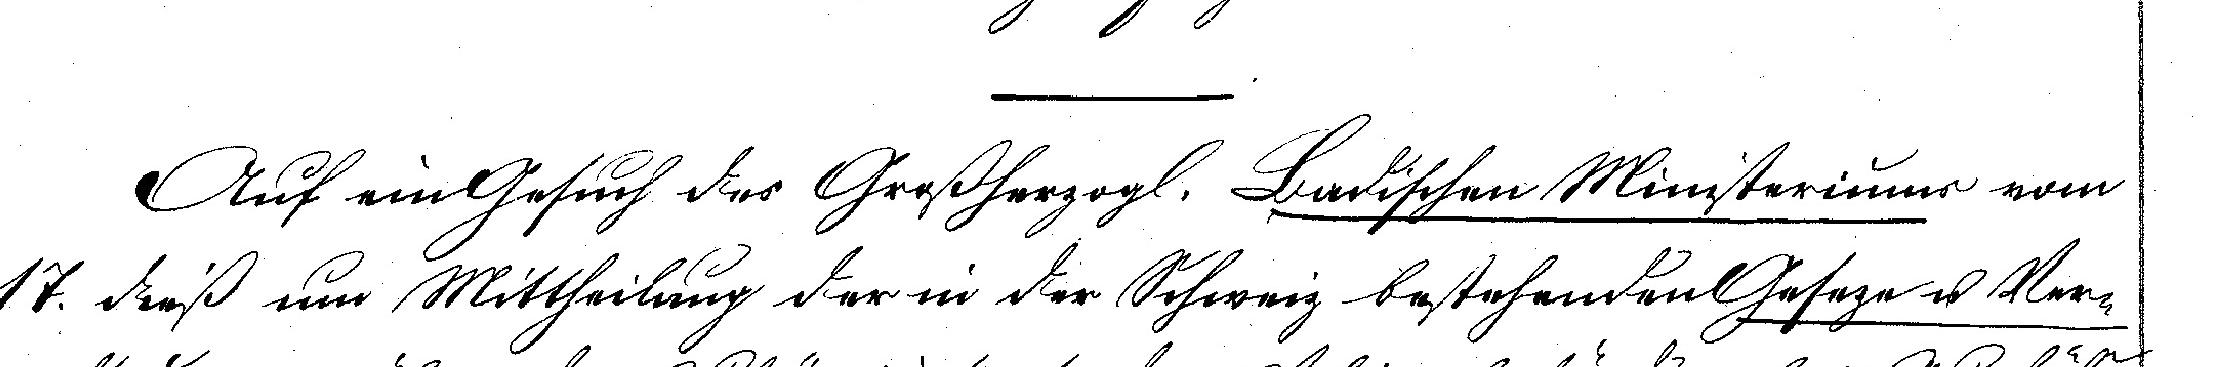 Auf ein Gesuch des Großherzogl. Badischen Ministeriums vom
17. dieß um Mittheilung der in der Schweiz bestehenden Geseze u Ver-